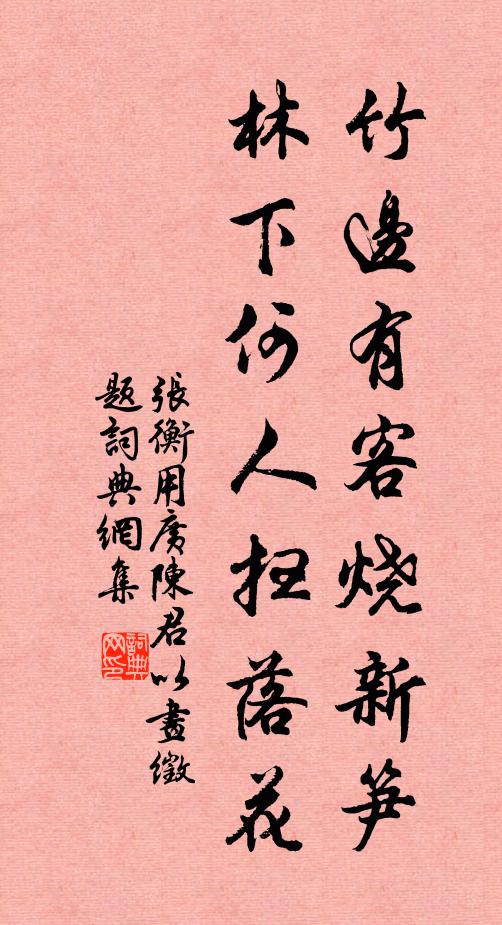 竹邊有客烧新笋
林下何人扫落花
張衡用廣陳君以畫徵
题詞典網集
詞典
网印